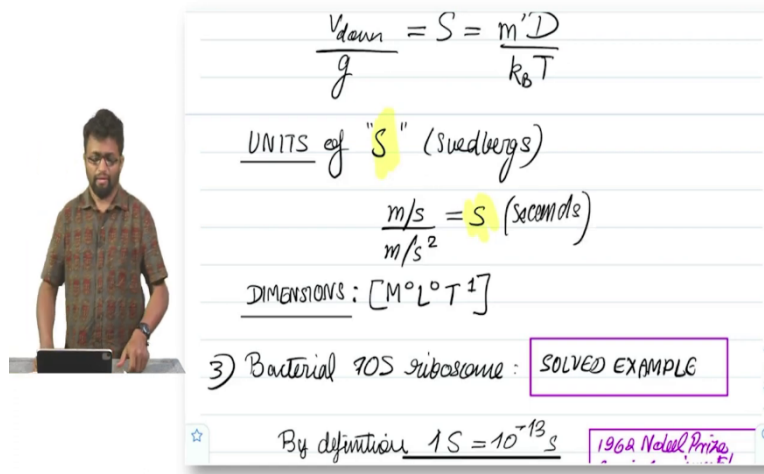 V_down / g = S = m'D / k_B T
UNITS of "S" (Svedbergs)
m/s / m/s² = s (seconds)
DIMENSIONS: [M⁰L⁰T¹]
3) Bacterial 70S ribosome: SOLVED EXAMPLE
By definition 1S = 10⁻¹³s
1962 Nobel Prize